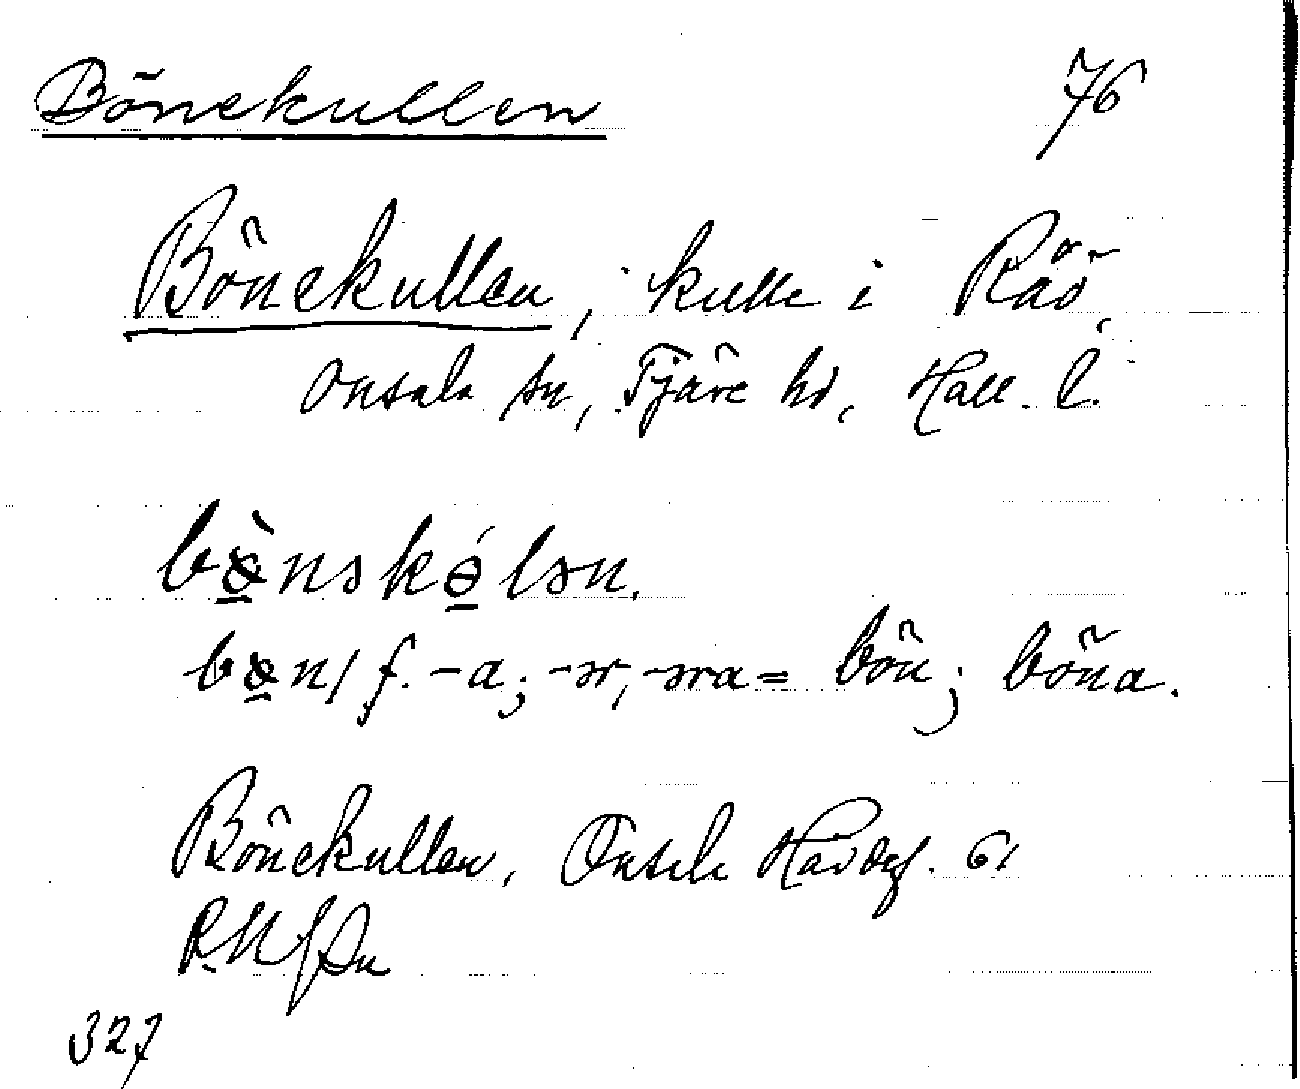 Bönekullen 76
Bönekullen, kulle i Råö,
Onsala sn, Fjäre hd, Hall. l.
bø̀nəkǿlən.
bøn/ f. -a; -ər, -əra = bön; böna.
Bönekullen, Onsala
327